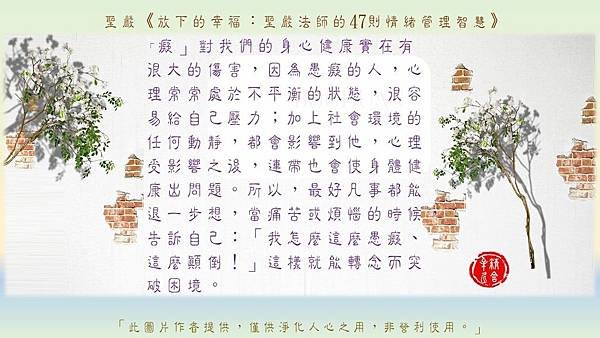 聖嚴《放下的幸福：聖嚴法師的47則情緒管理智慧》
「癡」對我們的身心健康實在有
很大的傷害，因為愚癡的人，心
理常常處於不平衡的狀態，很容
易給自己壓力；加上社會環境的
任何動靜，都會影響到他，心理
受影響之後，連帶也會使身體健
康出問題。所以，最好凡事都能
退一步想，當痛苦或煩惱的時候
告訴自己：「我怎麼這麼愚癡、
這麼顛倒！」這樣就能轉念而突
破困境。
「此圖片作者提供，僅供淨化人心之用，非營利使用。」